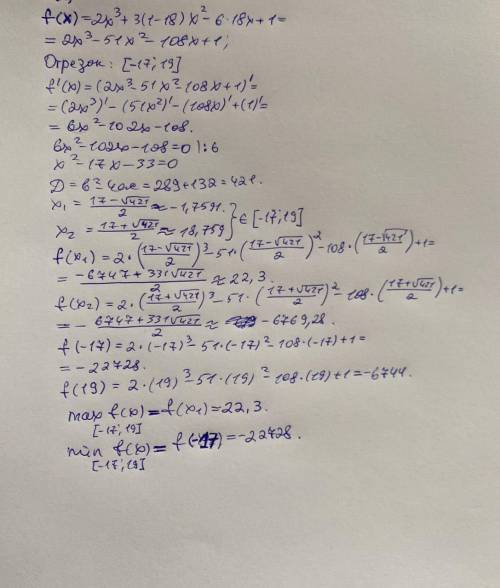 f(x)=2x³+3(1-18)x²-6·18x+1=
=2x³-51x²-108x+1;
Отрезок: [-17;19]
f'(x)=(2x³-51x²-108x+1)'=
=(2x³)'-(51x²)'-(108x)'+(1)'=
=6x²-102x-108.
6x²-102x-108=0 |:6
x²-17x-33=0
D=b²-4ac=289+132=421.
x₁=(17-√421)/2≈-1,7591.
x₂=(17+√421)/2≈18,759 } ∈ [-17;19]
f(x₁)=2·((17-√421)/2)³-51·((17-√421)/2)²-108·((17-√421)/2)+1=
=(-6747+331√421)/2≈22,3.
f(x₂)=2·((17+√421)/2)³-51·((17+√421)/2)²-108·((17+√421)/2)+1=
=-(6747+331√421)/2≈-6769,28.
f(-17)=2·(-17)³-51·(-17)²-108·(-17)+1=
=-22728.
f(19)=2·(19)³-51·(19)²-108·(19)+1=-6744.
max f(x)=f(x₁)=22,3.
[-17;19]
min f(x)=f(-17)=-22728.
[-17;19]